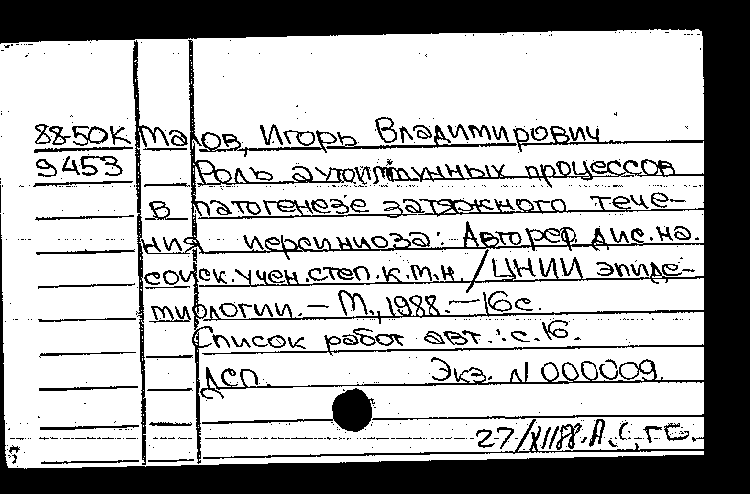 88-50К Малов, Игорь Владимирович
9453 Роль аутоиммунных процессов
в патогенезе затяжного тече-
ния иерсиниоза: Автореф. дис. на.
соиск. учен. степ. к.м.н. / ЦНИИ эпиде-
миологии. — М., 1988. — 16 с.
Список работ авт.: с. 16.
ДСП. Экз. N 000009.
27/XII88.